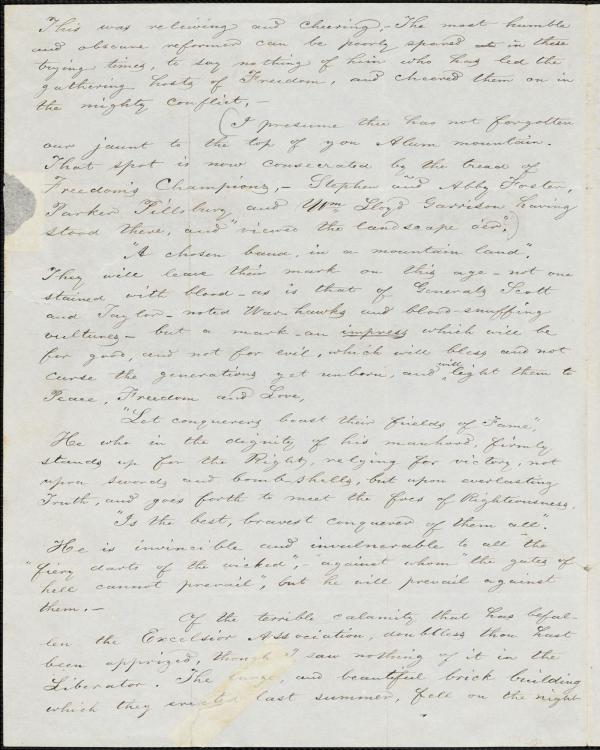 This was relieving and cheering,- The most humble
and obscure reformer can be poorly spared in these
trying times, to say nothing of him who has led the
gathering hosts of Freedom, and cheered them on in
the mighty conflict,-
(I presume thee has not forgotten
our jaunt to the top of you Alum mountain.
That spot is now consecrated by the tread of
Freedom's Champions,- Stephen and Abby Foster,
Parker Pillsbury and Wm Lloyd Garrison having
stood there, and "viewed the landscape o'er".)
"A chosen band, in a mountain land".
They will leave their mark on this age - not one
stained with blood - as is that of Generals Scott
and Taylor - noted War-hawks and blood-snuffing
vultures - but a mark - an impress which will be
for good, and not for evil, which will bless and not
curse the generations yet unborn, and will light them to
Peace, Freedom and Love,
"Let conquerors boast their fields of Fame",
He who in the dignity of his manhood, firmly
stands up for the Right, relying for victory, not
upon swords and bomb-shells, but upon everlasting
Truth, and goes forth to meet the foes of Righteousness,
"Is the best, bravest conqueror of them all".
He is invincible and invulnerable to all "the
"fiery darts of the wicked",- against whom "the gates of
hell cannot prevail", but he will prevail against
them.-
Of the terrible calamity that has befal-
len the Excelsior Association, doubtless thou hast
been apprized, though I saw nothing of it in the
Liberator. The large, and beautiful brick building
which they erected last summer, fell on the night